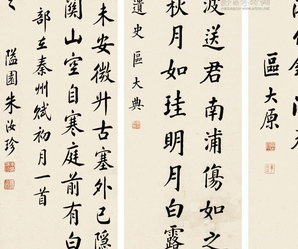 區大原
波送君南浦傷如之
秋月如珪明月白露
遺史區大典
未安微升古塞外已隱
關山空自寒庭前有白
部 秦州賦初月一首
隘園朱汝珍